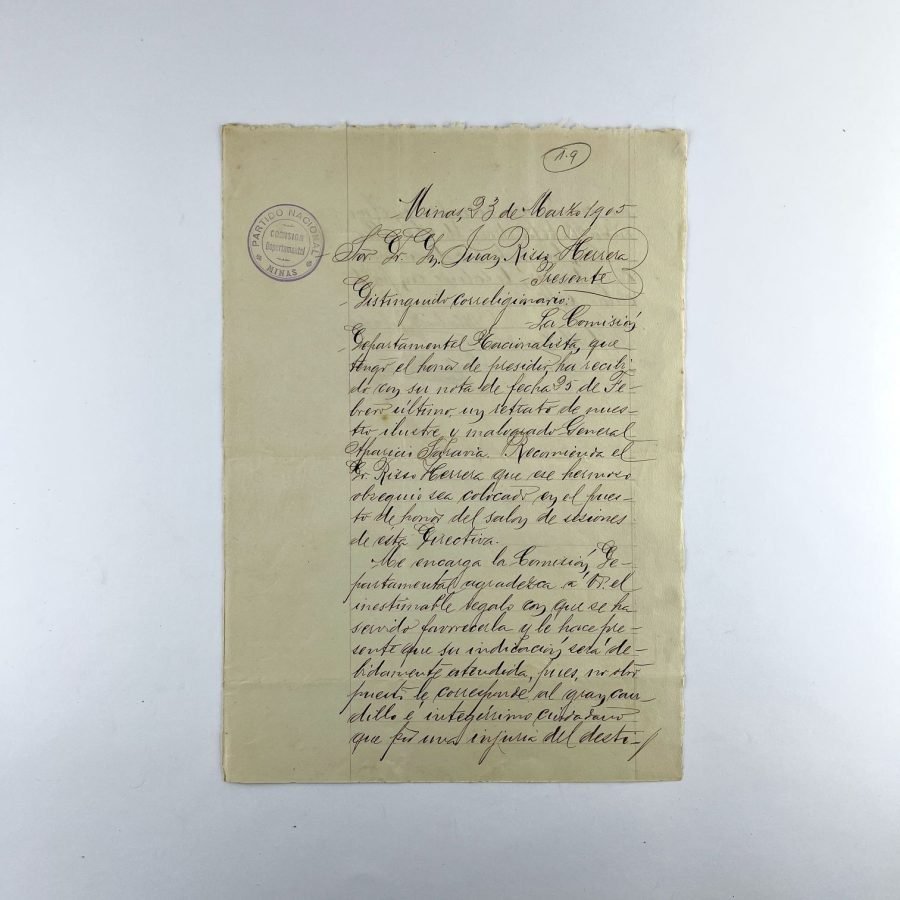 1-9
PARTIDO NACIONAL
COMISION
Departamental
MINAS
Minas, 23 de Marzo 1905
Sor. Dr. Dn. Juan Risso Herrera
Presente
Distinguido correligionario:
La Comisión
Departamental Nacionalista, que
tengo el honor de presidir, ha recibi-
do con su nota de fecha 25 de Fe-
brero último, un retrato de nues-
tro ilustre y malogrado General
Aparicio Saravia. Recomienda el
Dr. Risso Herrera que ese hermoso
obsequio sea colocado en el pues-
to de honor del salon de sesiones
de ésta Directiva.
Me encarga la Comisión De-
partamental agradezca á Ud. el
inestimable regalo con que se ha
servido favorecerla y le hace pre-
sente que su indicación será de-
bidamente atendida, pues, no otro
puesto le corresponde al gran cau-
dillo é integérrimo ciudadano
que por una injuria del desti-